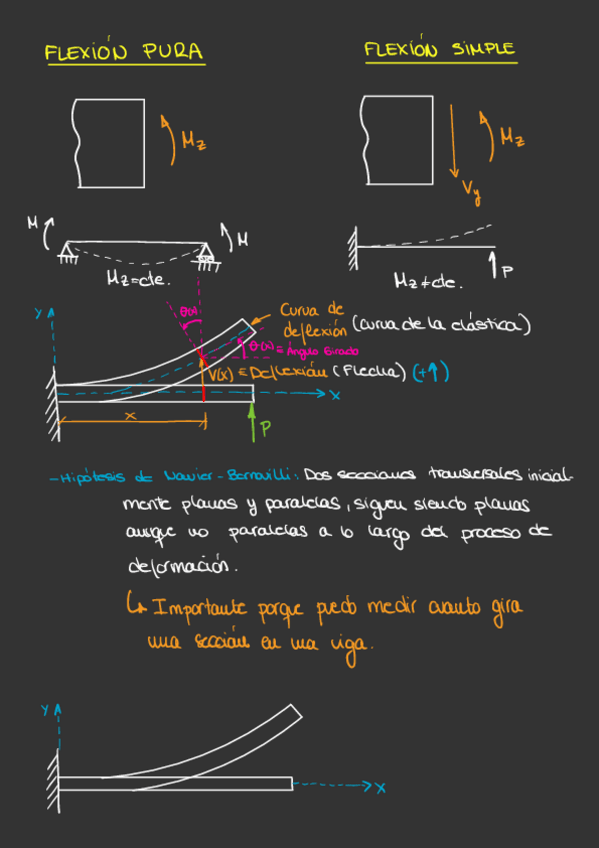 FLEXIÓN PURA
FLEXIÓN SIMPLE
Mz
Mz
Vy
M
M
Mz=cte.
P
Mz≠cte.
y
θ(x)
Curva de
deflexión (curva de la elástica)
θ(x) ≡ Ángulo Girado
V(x) ≡ Deflexión (Flecha) (+↑)
x
x
P
- Hipótesis de Navier-Bernouilli: Dos secciones transversales inicial-
mente planas y paralelas, siguen siendo planas
aunque no paralelas a lo largo del proceso de
deformación.
↳ Importante porque puedo medir cuanto gira
una sección en una viga.
y
x